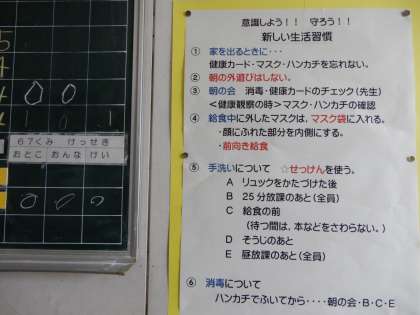 意識しよう！！ 守ろう！！
新しい生活習慣
① 家を出るときに・・・
健康カード・マスク・ハンカチを忘れない。
② 朝の外遊びはしない。
③ 朝の会 消毒・健康カードのチェック(先生)
<健康観察の時>マスク・ハンカチの確認
④ 給食中に外したマスクは、マスク袋に入れる。
・顔にふれた部分を内側にする。
・前向き給食
⑤ 手洗いについて ☆せっけんを使う。
A リュックをかたづけた後
B 25分放課のあと(全員)
C 給食の前
(待つ間は、本などをさわらない。)
D そうじのあと
E 昼放課のあと(全員)
⑥ 消毒について
ハンカチでふいてから・・・・朝の会・B・C・E
67くみ けっせき
おとこ おんな けい